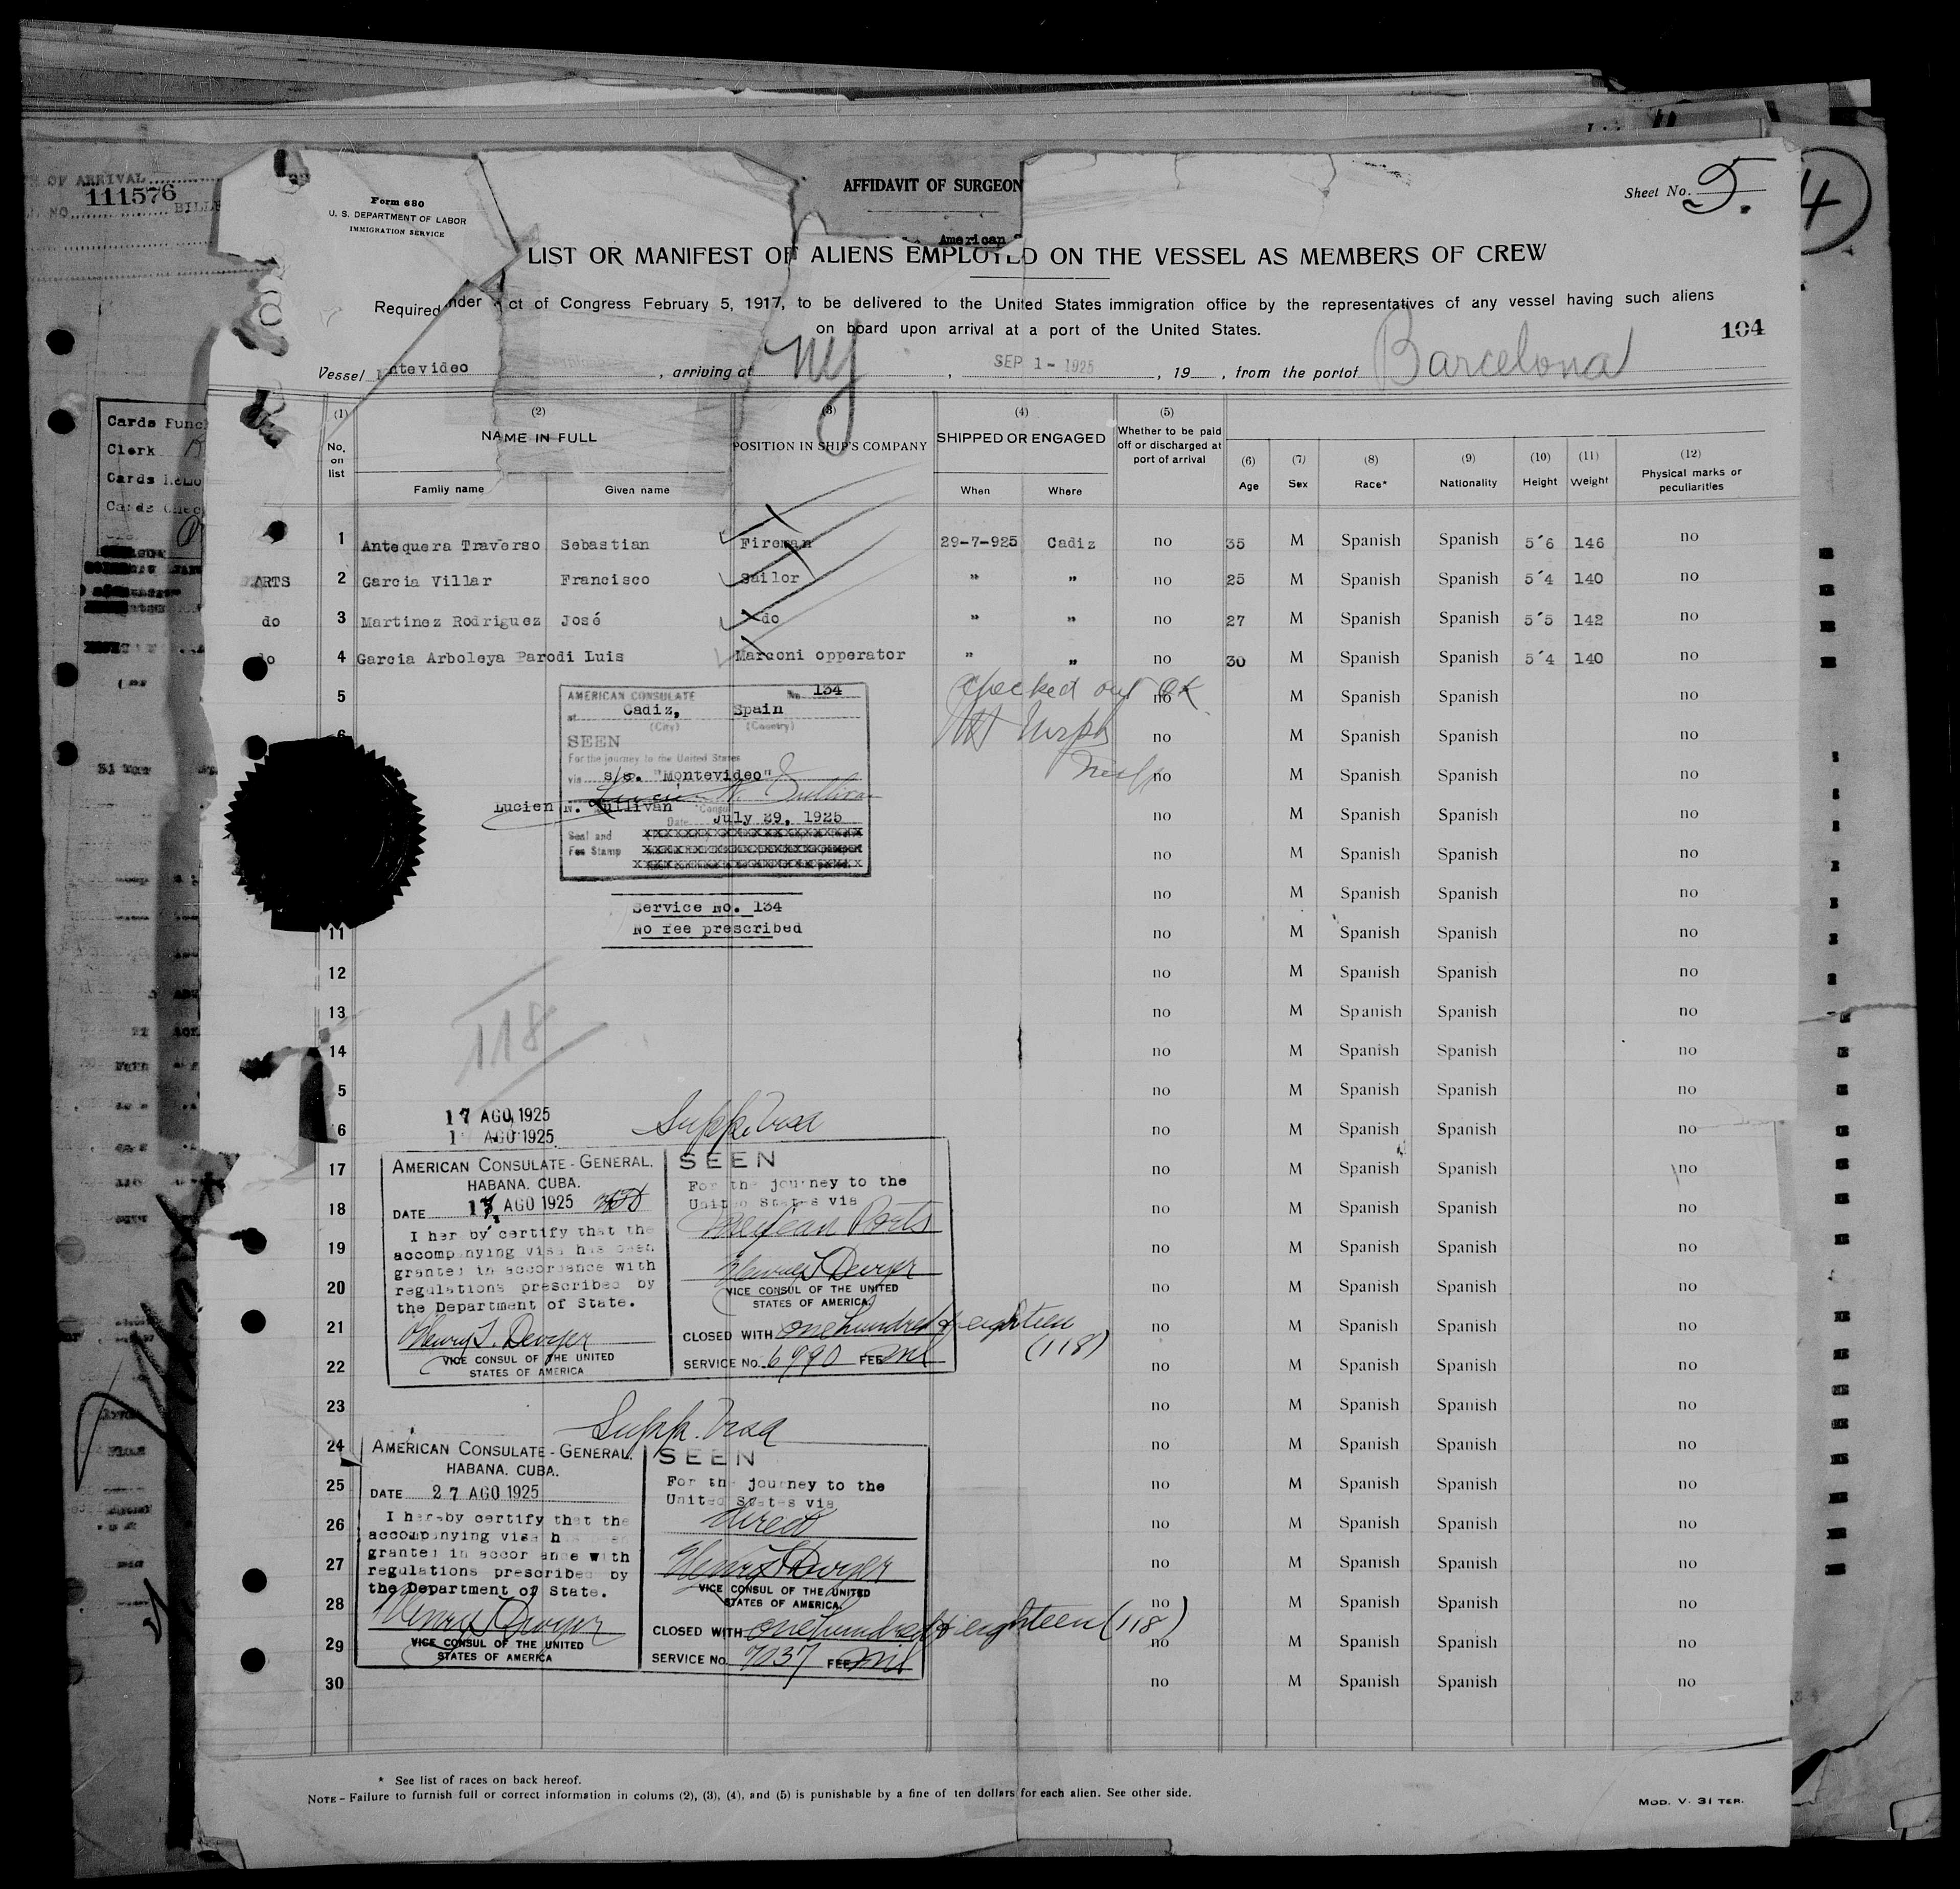 OF ARRIVAL
111576
NO. BILL
AFFIDAVIT OF SURGEON
American
Form 680
U. S. DEPARTMENT OF LABOR
IMMIGRATION SERVICE
Sheet No. 5.
4
LIST OR MANIFEST OF ALIENS EMPLOYED ON THE VESSEL AS MEMBERS OF CREW
Required nder ct of Congress February 5, 1917, to be delivered to the United States immigration office by the representatives of any vessel having such aliens
on board upon arrival at a port of the United States.
104
Vessel ntevideo , arriving at NY , SEP 1 - 1925 , 19 , from the port of Barcelona
Cards Func
Clerk
Cards
Cards Chec
(1) (2) (3) (4) (5)
No. on list NAME IN FULL POSITION IN SHIP'S COMPANY SHIPPED OR ENGAGED Whether to be paid off or discharged at port of arrival
(6) (7) (8) (9) (10) (11) (12)
Family name Given name When Where Age Sex Race* Nationality Height Weight Physical marks or peculiarities
1 Antequera Traverso Sebastian Fireman 29-7-925 Cadiz no 35 M Spanish Spanish 5´6 146 no
ARTS 2 Garcia Villar Francisco Sailor " " no 25 M Spanish Spanish 5´4 140 no
do 3 Martinez Rodriguez José do " " no 27 M Spanish Spanish 5´5 142 no
do 4 Garcia Arboleya Parodi Luis Marconi opperator " " no 30 M Spanish Spanish 5´4 140 no
5 no M Spanish Spanish no
checked out OK
6 no M Spanish Spanish no
no M Spanish Spanish no
no M Spanish Spanish no
no M Spanish Spanish no
no M Spanish Spanish no
11 no M Spanish Spanish no
12 no M Spanish Spanish no
13 no M Spanish Spanish no
14 no M Spanish Spanish no
5 no M Spanish Spanish no
6 no M Spanish Spanish no
17 no M Spanish Spanish no
18 no M Spanish Spanish no
19 no M Spanish Spanish no
20 no M Spanish Spanish no
21 no M Spanish Spanish no
22 no M Spanish Spanish no
23 no M Spanish Spanish no
24 no M Spanish Spanish no
25 no M Spanish Spanish no
26 no M Spanish Spanish no
27 no M Spanish Spanish no
28 no M Spanish Spanish no
29 no M Spanish Spanish no
30 no M Spanish Spanish no
AMERICAN CONSULATE No. 134
at Cadiz, Spain
(City) (Country)
SEEN
For the journey to the United States
via s/s. "Montevideo"
Lucien N. Sullivan
Lucien N. Sullivan Consul
Date July 29, 1925
Seal and
Fee Stamp
Service No. 134
No fee prescribed
118
17 AGO 1925
1 AGO 1925
Supp. Visa
AMERICAN CONSULATE-GENERAL.
HABANA. CUBA.
DATE 17 AGO 1925
I her by certify that the
accompanying visa has been
granted in accordance with
regulations prescribed by
the Department of State.
Henry T. Dwyer
VICE CONSUL OF THE UNITED
STATES OF AMERICA
SEEN
For the journey to the
United States via
Mexican Ports
Henry T Dwyer
VICE CONSUL OF THE UNITED
STATES OF AMERICA.
CLOSED WITH one hundred & eighteen
(118)
SERVICE No. 6990 FEE nil
Supp. Visa
AMERICAN CONSULATE-GENERAL.
HABANA. CUBA.
DATE 27 AGO 1925
I hereby certify that the
accompanying visa h en
granted in accor ance with
regulations prescribed by
the Department of State.
Henry T Dwyer
VICE CONSUL OF THE UNITED
STATES OF AMERICA
SEEN
For the journey to the
United States via
direct
Henry T Dwyer
VICE CONSUL OF THE UNITED
STATES OF AMERICA.
CLOSED WITH one hundred & eighteen (118)
SERVICE No. 7037 FEE nil
* See list of races on back hereof.
NOTE - Failure to furnish full or correct information in colums (2), (3), (4), and (5) is punishable by a fine of ten dollars for each alien. See other side.
MOD. V. 31 TER.